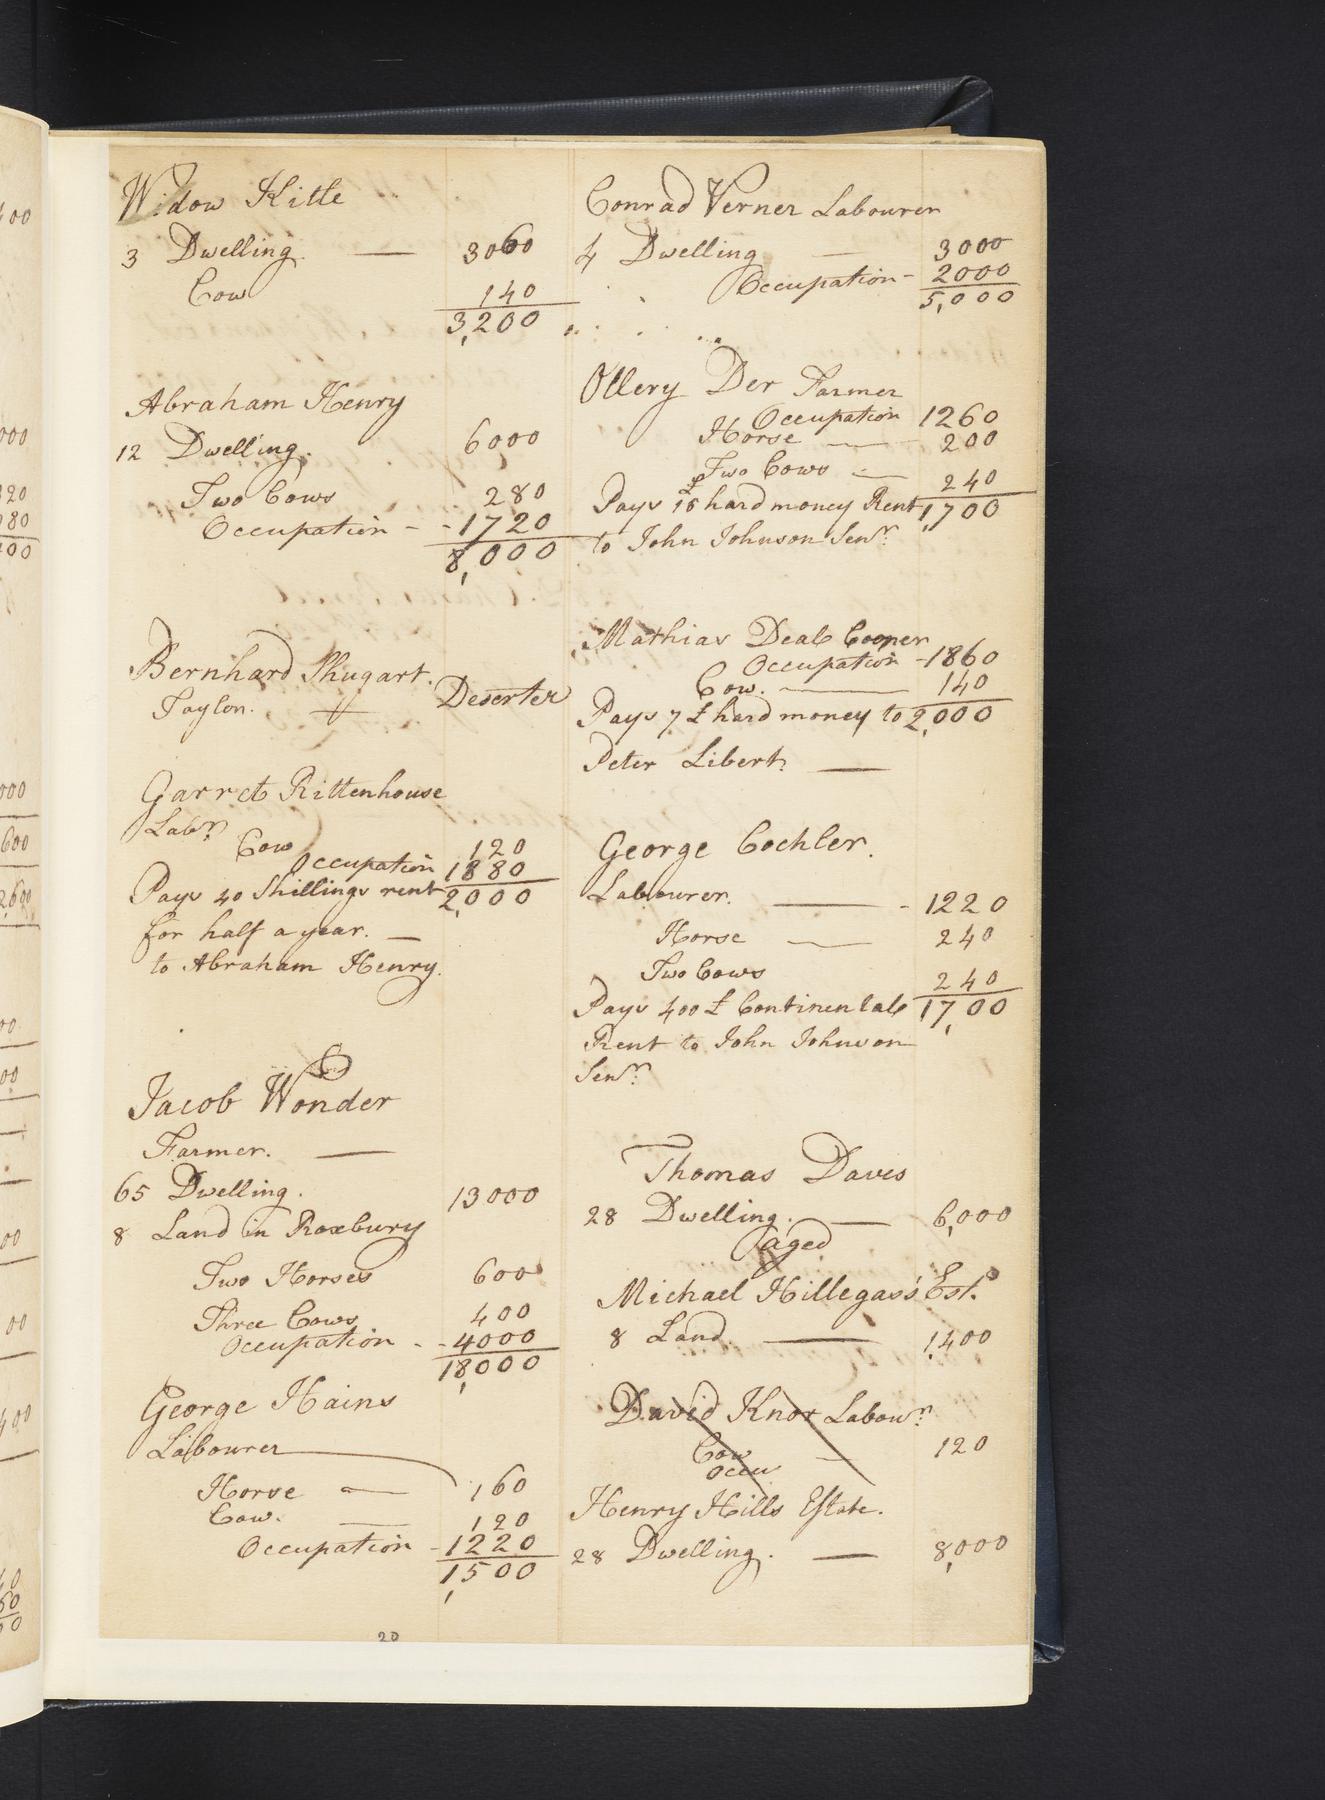 Widow Kitle
3 Dwelling — 3060
Cow 140
3,200
Abraham Henry
12 Dwelling. 6000
Two Cows 280
Occupation - - 1720
8,000
Bernhard Shugart.
Taylor. Deserter
Garret Rittenhouse
Labr.
Cow 120
Occupation 1880
Pays 40 Shillings rent 2,000
for half a year. —
to Abraham Henry.
Jacob Wonder
Farmer. —
65 Dwelling. 13000
8 Land in Roxbury
Two Horses 600
Three Cows 400
Occupation - - 4000
18,000
George Hains
Labourer
Horse — 160
Cow. — 120
Occupation - 1220
1,500
20
Conrad Verner Labourer
4 Dwelling — 3000
Occupation - 2000
5,000
Ollery Der Farmer
Occupation 1260
Horse — 200
Two Cows — 240
Pays 18 £ hard money Rent 1,700
to John Johnson Senr.
Mathias Deal Cooper
Occupation - 1860
Cow. — 140
Pays 7 £ hard money to 2,000
Peter Libert. —
George Cochler.
Labourer. — - 1220
Horse — 240
Two Cows 240
Pays 400 £ Continental 1,700
Rent to John Johnson
Senr.
Thomas Daves
28 Dwelling. — 6,000
aged
Michael Hillegass's Est.
8 Land — 1,400
David Knor Labour.
Cow — 120
Occu
Henry Hills Estate.
28 Dwelling. — 8,000